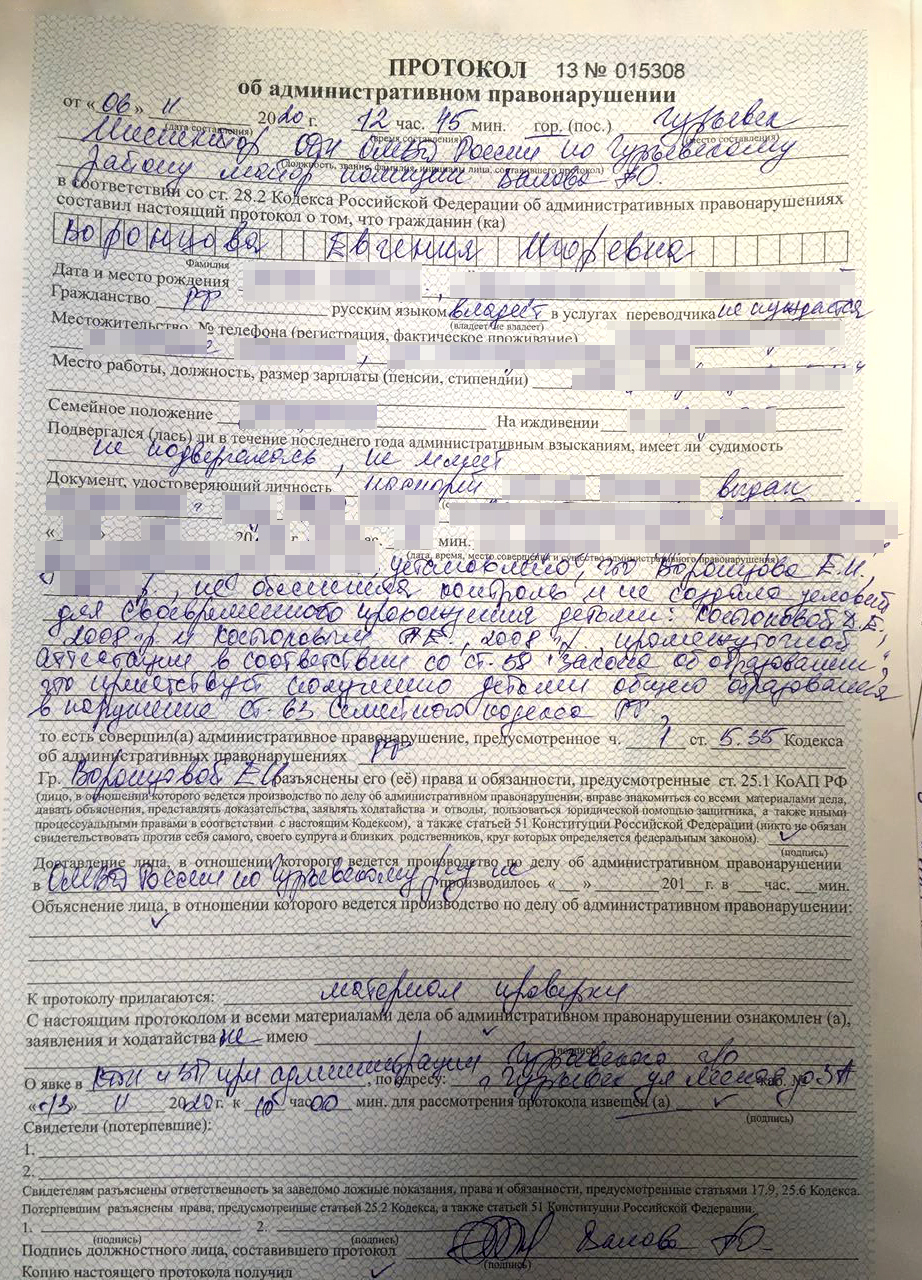 ПРОТОКОЛ 13 № 015308
об административном правонарушении
от « 06 » 11 2020 г. 12 час. 45 мин. гор. (пос.) Гурьевск
(дата составления) (время составления) (место составления)
Инспектор ОДН ОМВД России по Гурьевскому
(должность, звание, фамилия, инициалы лица, составившего протокол)
району майор полиции Ю.
в соответствии со ст. 28.2 Кодекса Российской Федерации об административных правонарушениях
составил настоящий протокол о том, что гражданин (ка)
Воронцова Евгения Игоревна
Фамилия
Дата и место рождения
Гражданство РФ русским языком владеет в услугах переводчика не нуждается
(владеет/не владеет)
Местожительство, № телефона (регистрация, фактическое проживание)
Место работы, должность, размер зарплаты (пенсии, стипендии)
Семейное положение На иждивении
Подвергался (лась) ли в течение последнего года административным взысканиям, имеет ли судимость
не подвергалась, не имеет
Документ, удостоверяющий личность паспорт выдан
« » 20 г. час. мин.
(дата, время, место совершения и существо административного правонарушения)
установлено, что Воронцова Е.И.
, не обеспечила контроль и не создала условий
для своевременного прохождения детьми: Д.Е.,
2008 г.р. и , 2008 г. промежуточной
аттестации в соответствии со ст. 58 "Закона об образовании",
что препятствует получению детьми общего образования
в нарушение ст. 63 Семейного кодекса РФ,
то есть совершил(а) административное правонарушение, предусмотренное ч. 1 ст. 5.35 Кодекса
об административных правонарушениях РФ
Гр. Воронцовой Е.И. разъяснены его (её) права и обязанности, предусмотренные ст. 25.1 КоАП РФ
(лицо, в отношении которого ведется производство по делу об административном правонарушении, вправе знакомиться со всеми материалами дела,
давать объяснения, представлять доказательства, заявлять ходатайства и отводы, пользоваться юридической помощью защитника, а также иными
процессуальными правами в соответствии с настоящим Кодексом), а также статьей 51 Конституции Российской Федерации (никто не обязан
свидетельствовать против себя самого, своего супруга и близких родственников, круг которых определяется федеральным законом).
(подпись)
Доставление лица, в отношении которого ведется производство по делу об административном правонарушении
в ОМВД России по Гурьевскому не производилось « » 201 г. в час. мин.
Объяснение лица, в отношении которого ведется производство по делу об административном правонарушении:
К протоколу прилагаются: материал проверки
С настоящим протоколом и всеми материалами дела об административном правонарушении ознакомлен (а),
заявления и ходатайства не имею
(подпись)
О явке в КДН и ЗП при администрации Гурьевского ГО , по адресу: г. Гурьевск ул каб. №
«13» 11 2020 г. к 10 час 00 мин. для рассмотрения протокола извещен (а)
(подпись)
Свидетели (потерпевшие):
1.
2.
Свидетелям разъяснены ответственность за заведомо ложные показания, права и обязанности, предусмотренные статьями 17.9, 25.6 Кодекса.
Потерпевшим разъяснены права, предусмотренные статьей 25.2 Кодекса, а также статьей 51 Конституции Российской Федерации.
1. 2.
(подпись) (подпись)
Подпись должностного лица, составившего протокол Ю.
(подпись)
Копию настоящего протокола получил